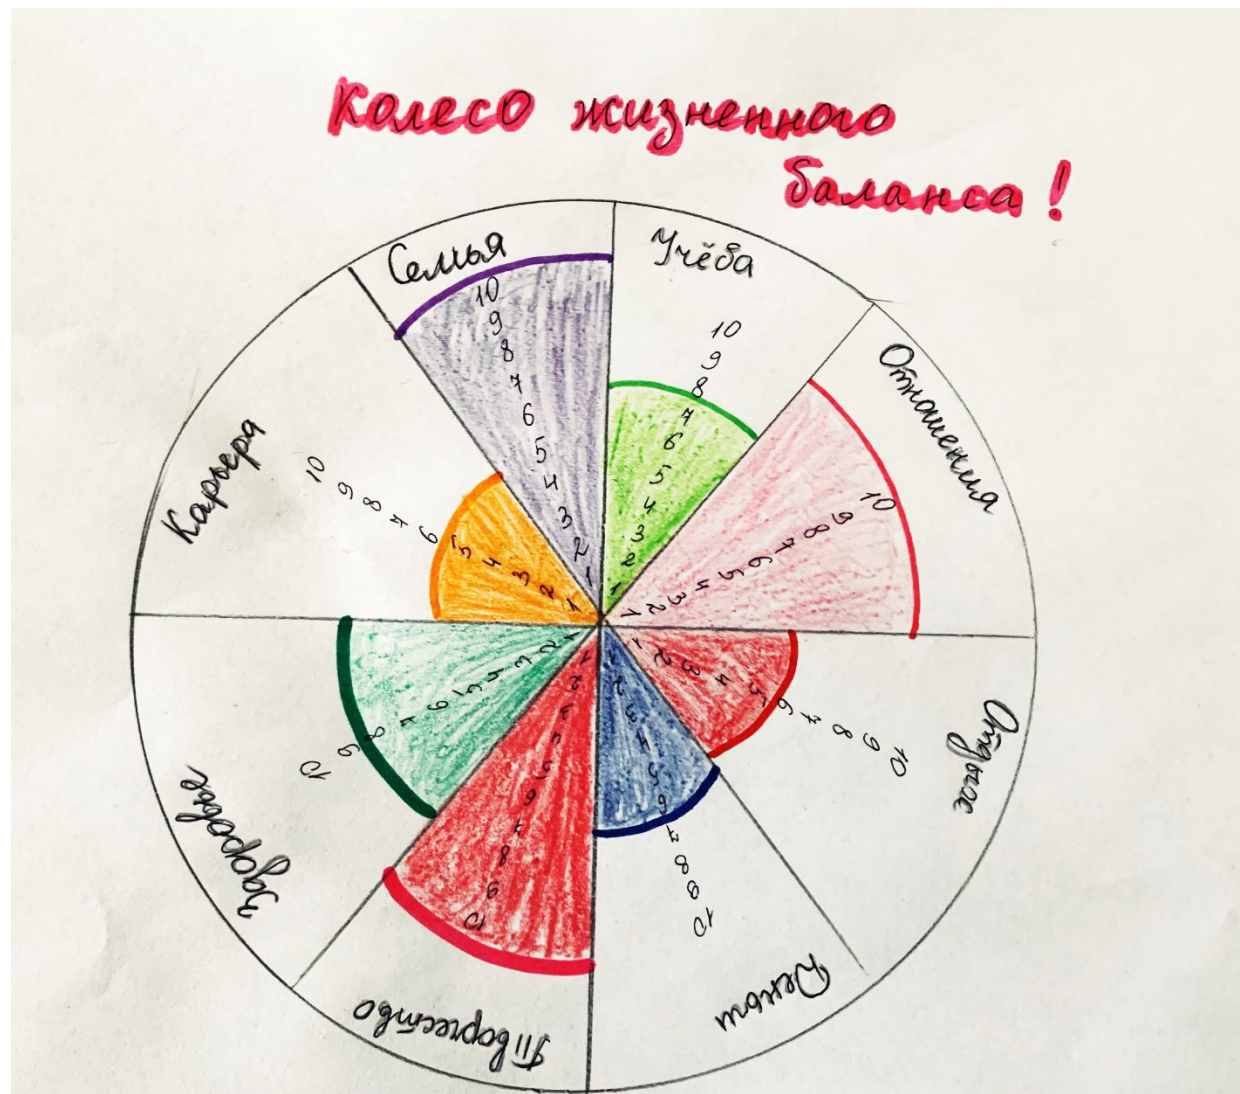 Колесо жизненного
баланса!
Семья
10
9
8
7
6
5
4
3
2
1
Учёба
10
9
8
7
6
5
4
3
2
1
Отношения
10
9
8
7
6
5
4
3
2
1
Отдых
1
2
3
4
5
6
7
8
9
10
Деньги
1
2
3
4
5
6
7
8
9
10
Творчество
1
2
3
4
5
6
7
8
9
10
Здоровье
1
2
3
4
5
6
7
8
9
10
Карьера
10
9
8
7
6
5
4
3
2
1